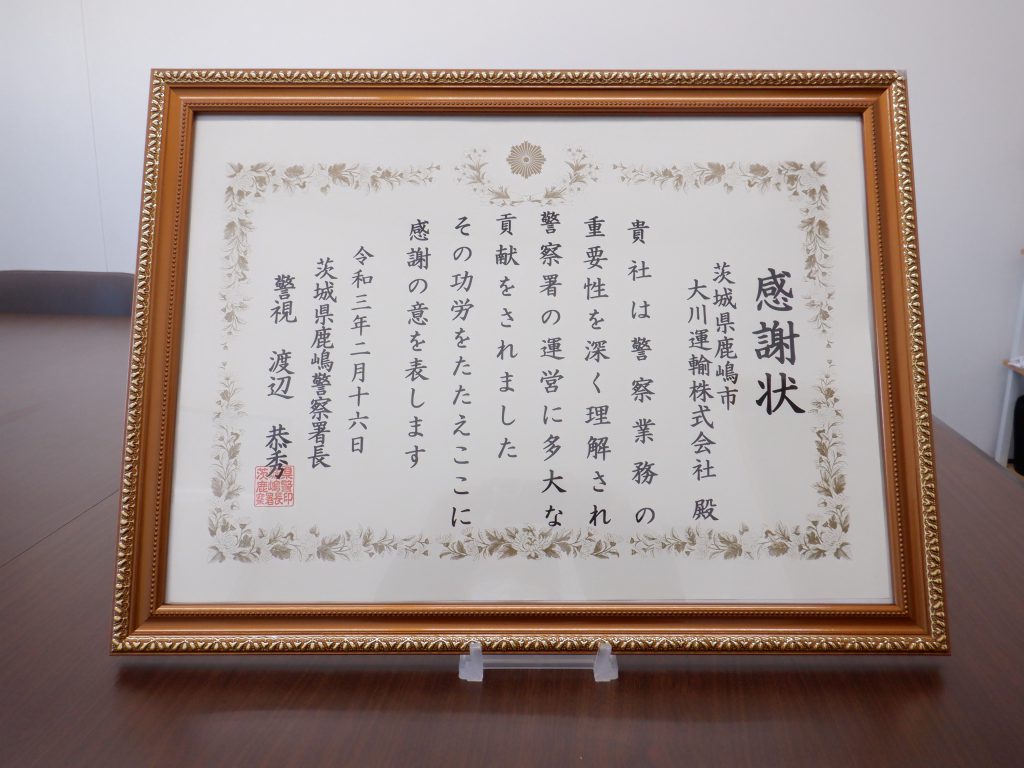 感謝状
茨城県鹿嶋市
大川運輸株式会社 殿
貴社は警察業務の
重要性を深く理解され
警察署の運営に多大な
貢献をされました
その功労をたたえここに
感謝の意を表します
令和三年二月十六日
茨城県鹿嶋警察署長
警視 渡辺 恭秀